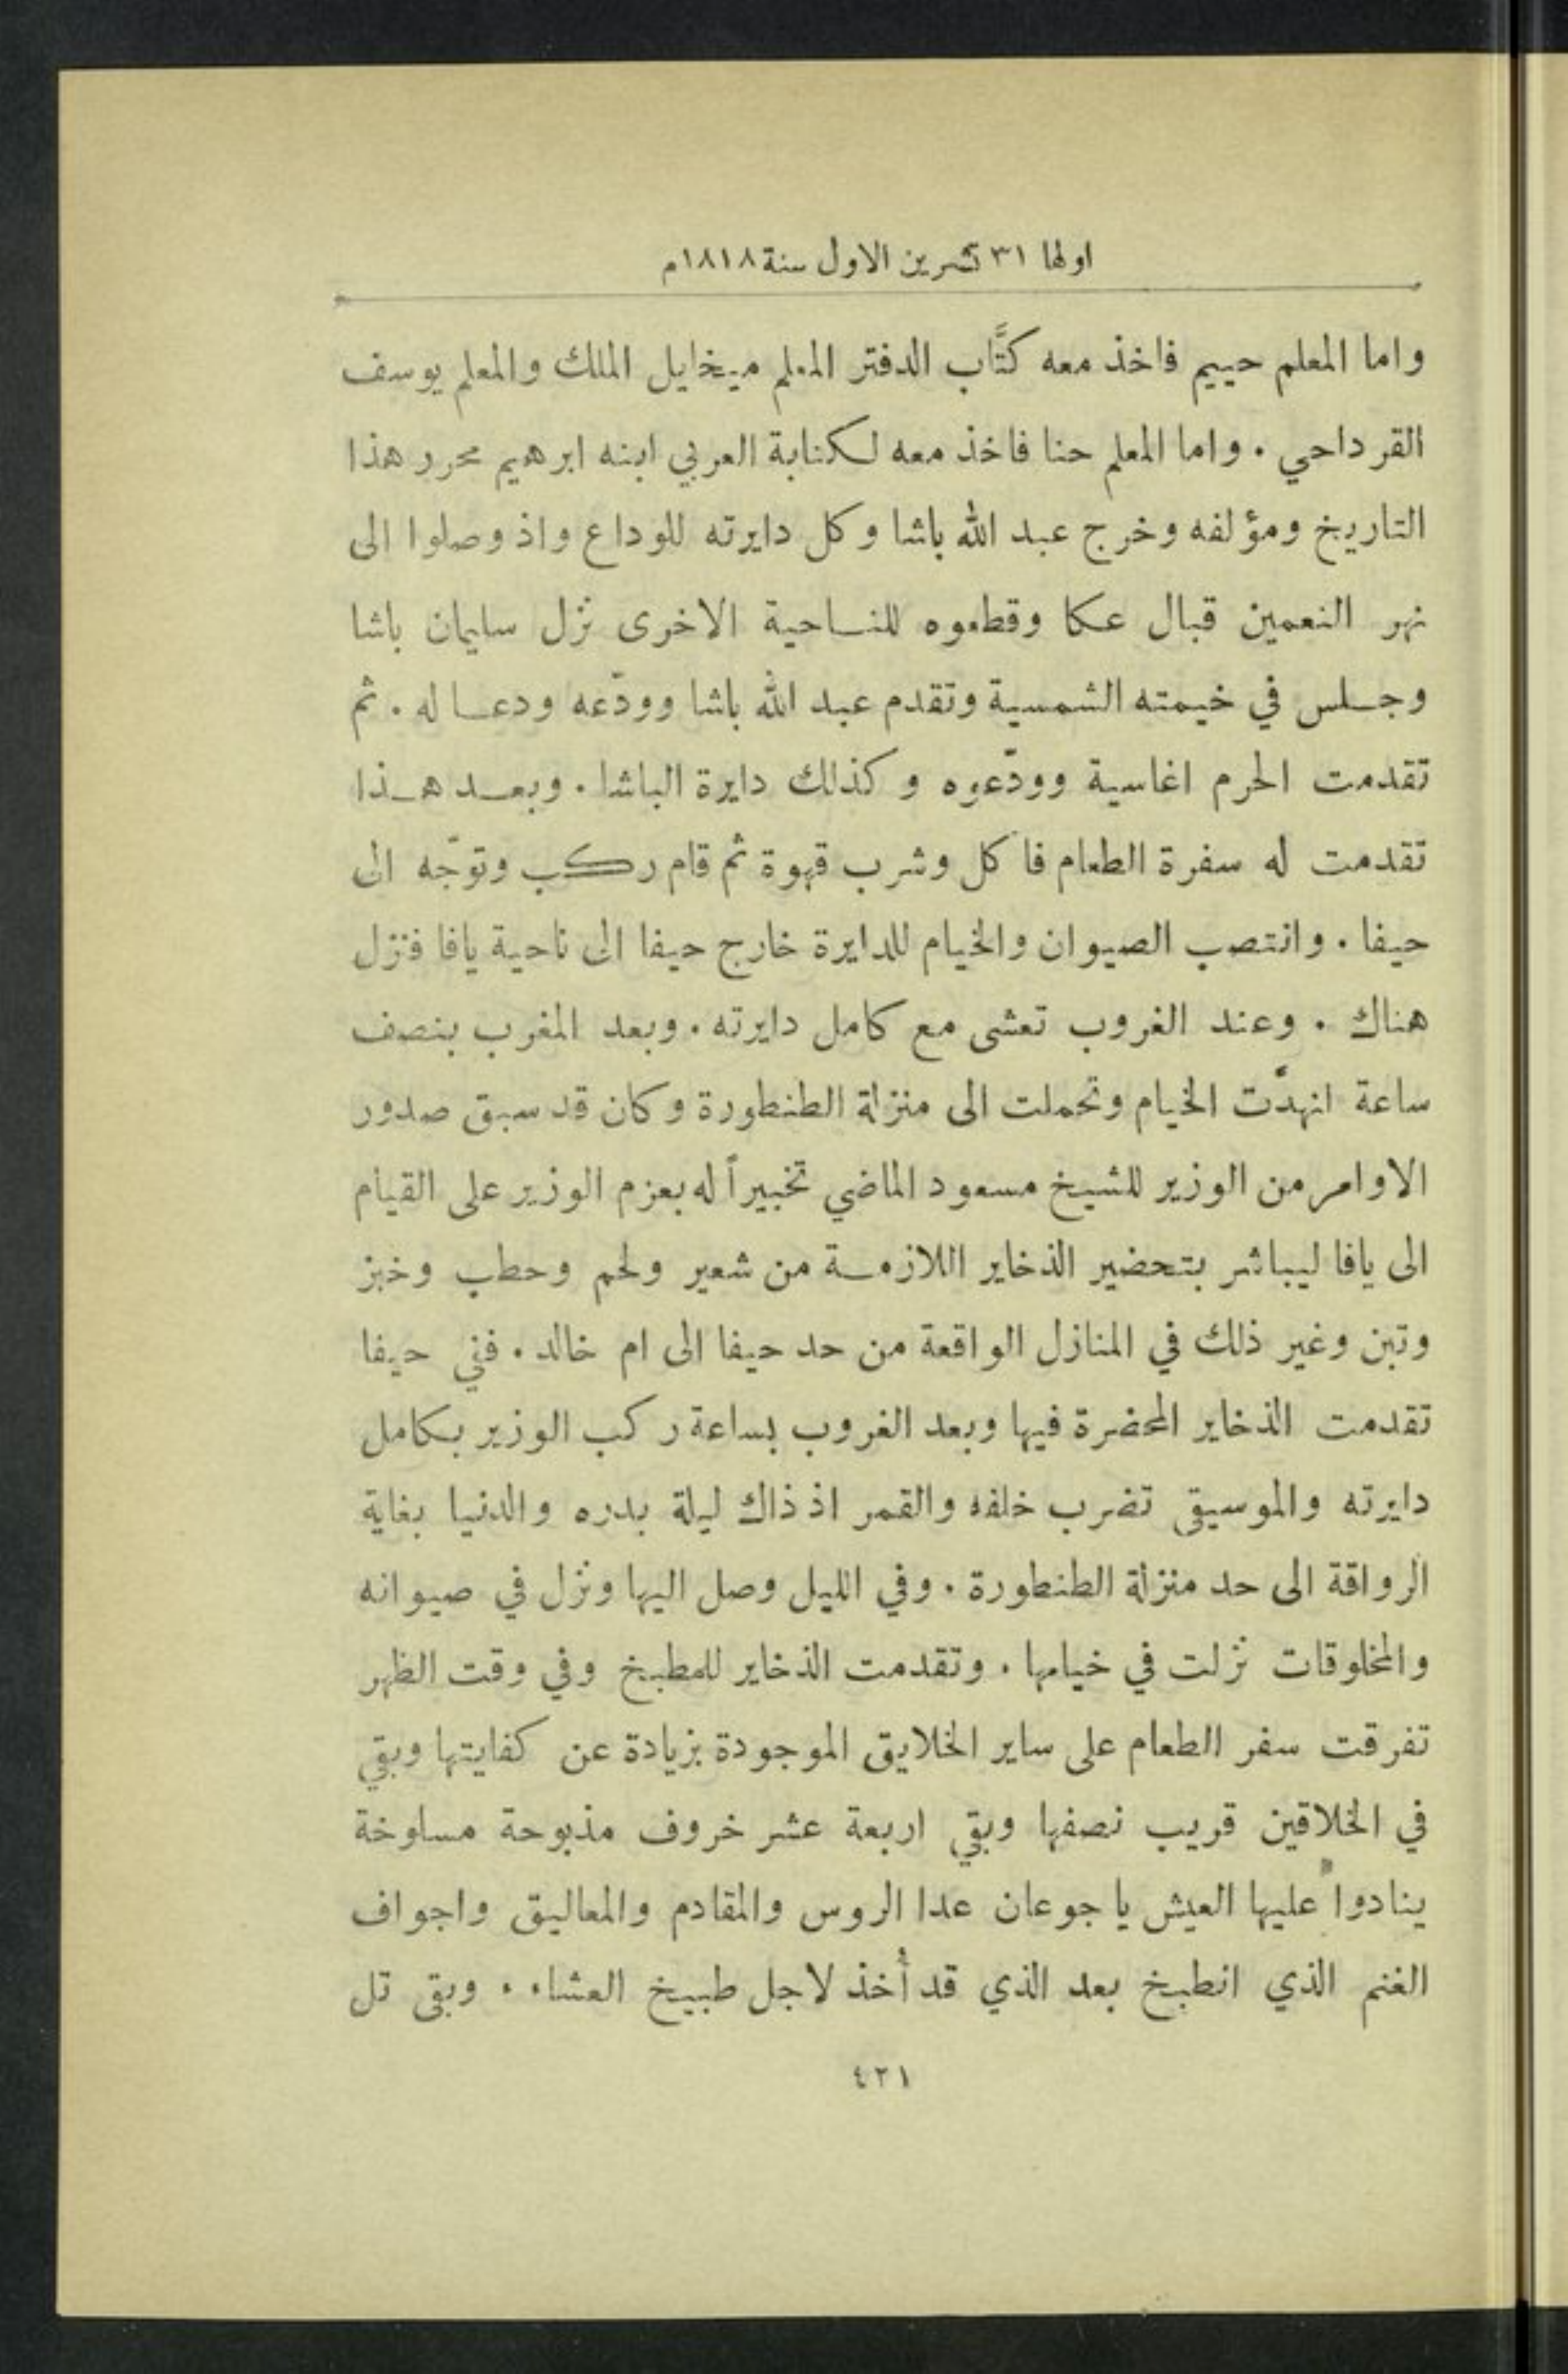 اولها ٣١ تشرين الاول سنة ١٨١٨م
واما المعلم حييم فاخذ معه كتَّاب الدفتر المعلم ميخايل الملك والمعلم يوسف
القرداحي . واما المعلم حنا فاخذ معه لكتابة العربي ابنه ابرهيم محرر هذا
التاريخ ومؤلفه وخرج عبد الله باشا وكل دايرته للوداع واذ وصلوا الى
نهر النعمين قبال عكا وقطعوه للناحية الاخرى نزل سليمان باشا
وجلس في خيمته الشمسية وتقدم عبد الله باشا وودّعه ودعا له . ثم
تقدمت الحرم اغاسية وودّعوه وكذلك دايرة الباشا . وبعد هذا
تقدمت له سفرة الطعام فاكل وشرب قهوة ثم قام ركب وتوجّه الى
حيفا . وانتصب الصيوان والخيام للدايرة خارج حيفا الى ناحية يافا فنزل
هناك . وعند الغروب تعشى مع كامل دايرته . وبعد المغرب بنصف
ساعة انهدَّت الخيام وتحملت الى منزلة الطنطورة وكان قد سبق صدور
الاوامر من الوزير للشيخ مسعود الماضي تخبيراً له بعزم الوزير على القيام
الى يافا ليباشر بتحضير الذخاير اللازمة من شعير ولحم وحطب وخبز
وتبن وغير ذلك في المنازل الواقعة من حد حيفا الى ام خالد . ففي حيفا
تقدمت الذخاير المحضرة فيها وبعد الغروب بساعة ركب الوزير بكامل
دايرته والموسيقى تضرب خلفه والقمر اذ ذاك ليلة بدره والدنيا بغاية
الرواقة الى حد منزلة الطنطورة . وفي الليل وصل اليها ونزل في صيوانه
والمخلوقات نزلت في خيامها . وتقدمت الذخاير للمطبخ وفي وقت الظهر
تفرقت سفر الطعام على ساير الخلايق الموجودة بزيادة عن كفايتها وبقي
في الخلاقين قريب نصفها وبقي اربعة عشر خروف مذبوحة مسلوخة
ينادوا عليها العيش يا جوعان عدا الروس والمقادم والمعاليق واجواف
الغنم الذي انطبخ بعد الذي قد أُخذ لاجل طبيخ العشاء . وبقى تل
٤٢١